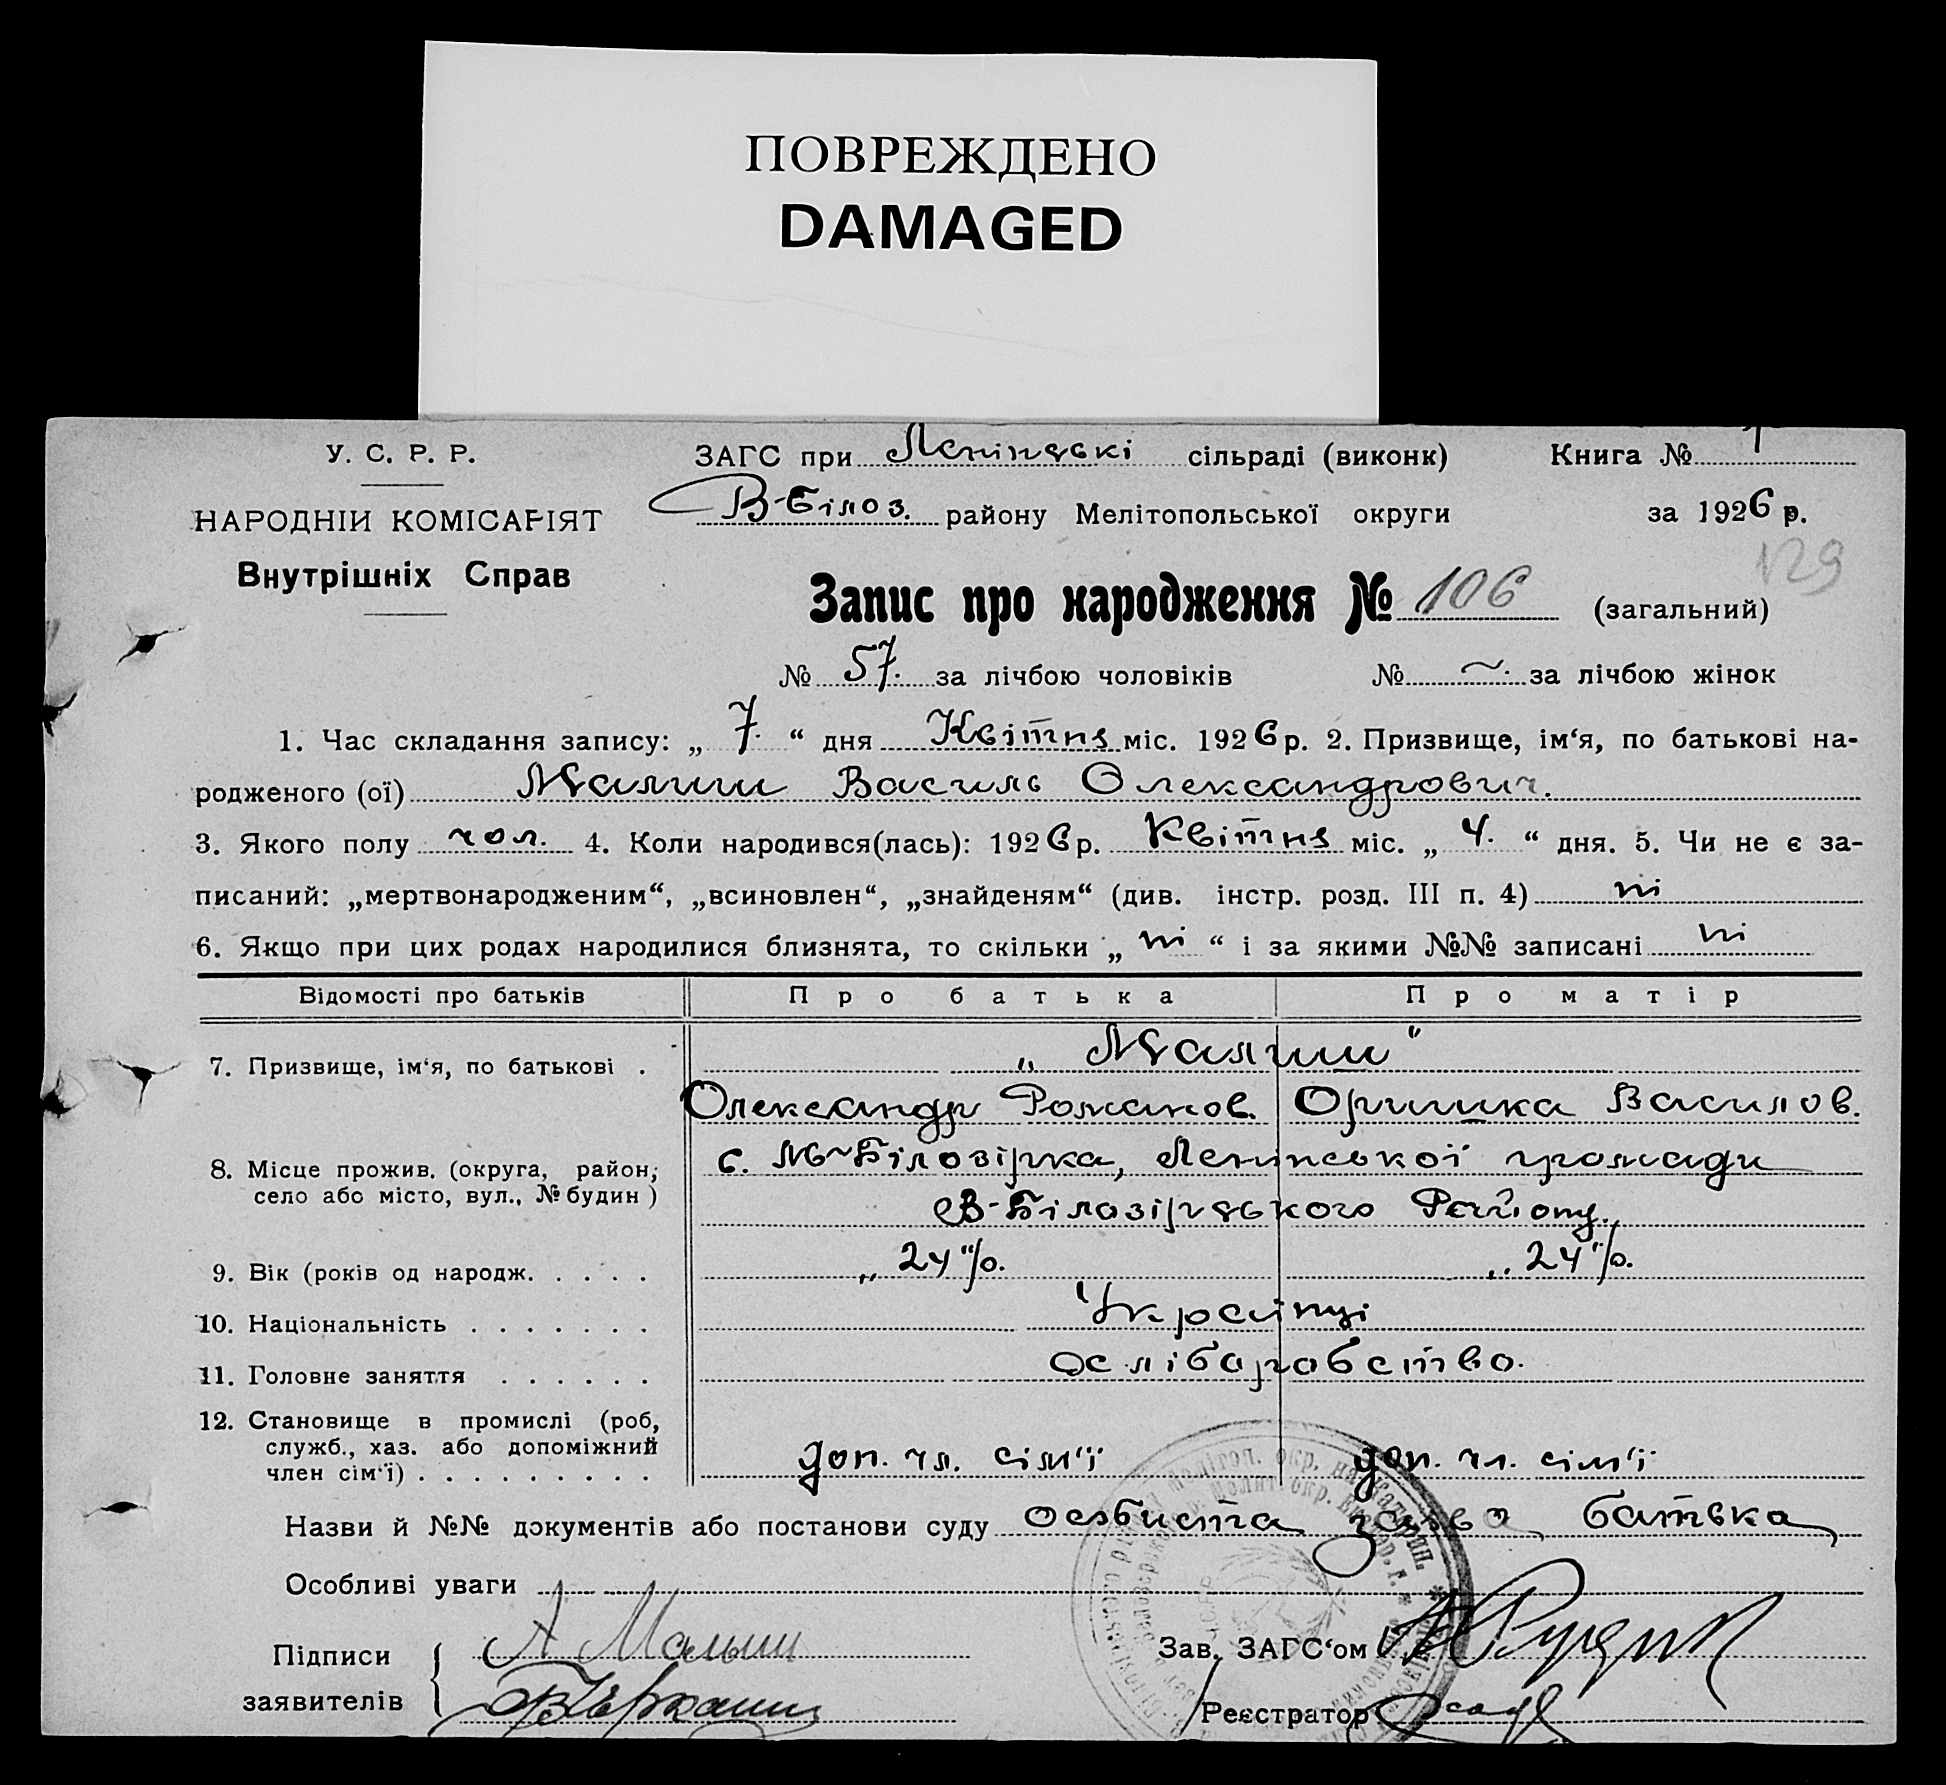 ПОВРЕЖДЕНО
DAMAGED
У. С. Р. Р.
НАРОДНІЙ КОМІСАРІЯТ
Внутрішніх Справ
ЗАГС при Ленінські сільраді (виконк) Книга № 1
В-Білоз. району Мелітопольської округи за 1926 р.
129
Запис про народження № 106 (загальний)
№ 57. за лічбою чоловіків № ~ за лічбою жінок
1. Час складання запису: „ 7. “ дня Квітня міс. 1926 р. 2. Призвище, ім‘я, по батькові на-
родженого (ої) Малиш Василь Олександрович.
3. Якого полу чол. 4. Коли народився(лась): 1926 р. Квітня міс. „ 4. “ дня. 5. Чи не є за-
писаний: „мертвонародженим“, „всиновлен“, „знайденям“ (див. інстр. розд. III п. 4) ні
6. Якщо при цих родах народилися близнята, то скільки „ ні “ і за якими №№ записані ні
Відомості про батьків Про батька Про матір
7. Призвище, ім‘я, по батькові . „ Малиш “
Олександр Романов. Оришка Васалов.
8. Місце прожив. (округа, район, с. М-Білозірка, Ленінської громади
село або місто, вул., № будин ) В-Білазірського Району.
9. Вік (років од народж. . . . . „ 24 “/о. „ 24 “/о.
10. Національність . . . . . . . Українці
11. Головне заняття . . . . . . Хліборобство.
12. Становище в промислі (роб,
служб., хаз. або допоміжний
член сім‘ї) . . . . . . . . . доп. чл. сім‘ї доп. чл. сім‘ї
Назви й №№ документів або постанови суду особиста заява батька
Особливі уваги
Підписи А Малыш Зав. ЗАГС‘ом
заявителів Реєстратор